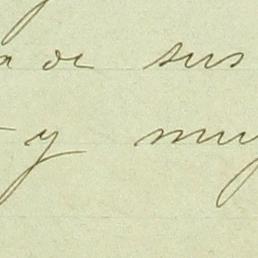 a de sus
y muy